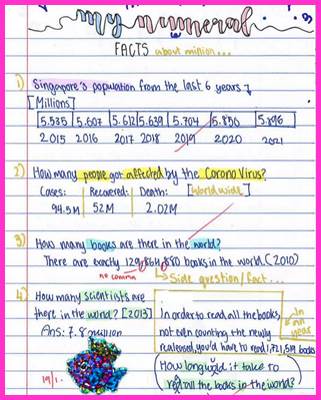 my numeral
FACTS about million...
1) Singapore's population from the last 6 years
[Millions]
5.535 5.607 5.612 5.639 5.704 5.850 5.896
2015 2016 2017 2018 2019 2020 2021
2) How many people got affected by the Corona Virus?
Cases: Recovered: Death: [Worldwide]
94.5M 52M 2.02M
3) How many books are there in the world?
There are exactly 129,864,880 books in the world. (2010)
no comma
Side question/fact...
4) How many scientists are
there in the world? [2013]
Ans: 7.8 million
In order to read all the books,
not even counting the newly
realeased, you'd have to read 1,721,519 books
In
an
year
How long would it take to
read all the books in the world?